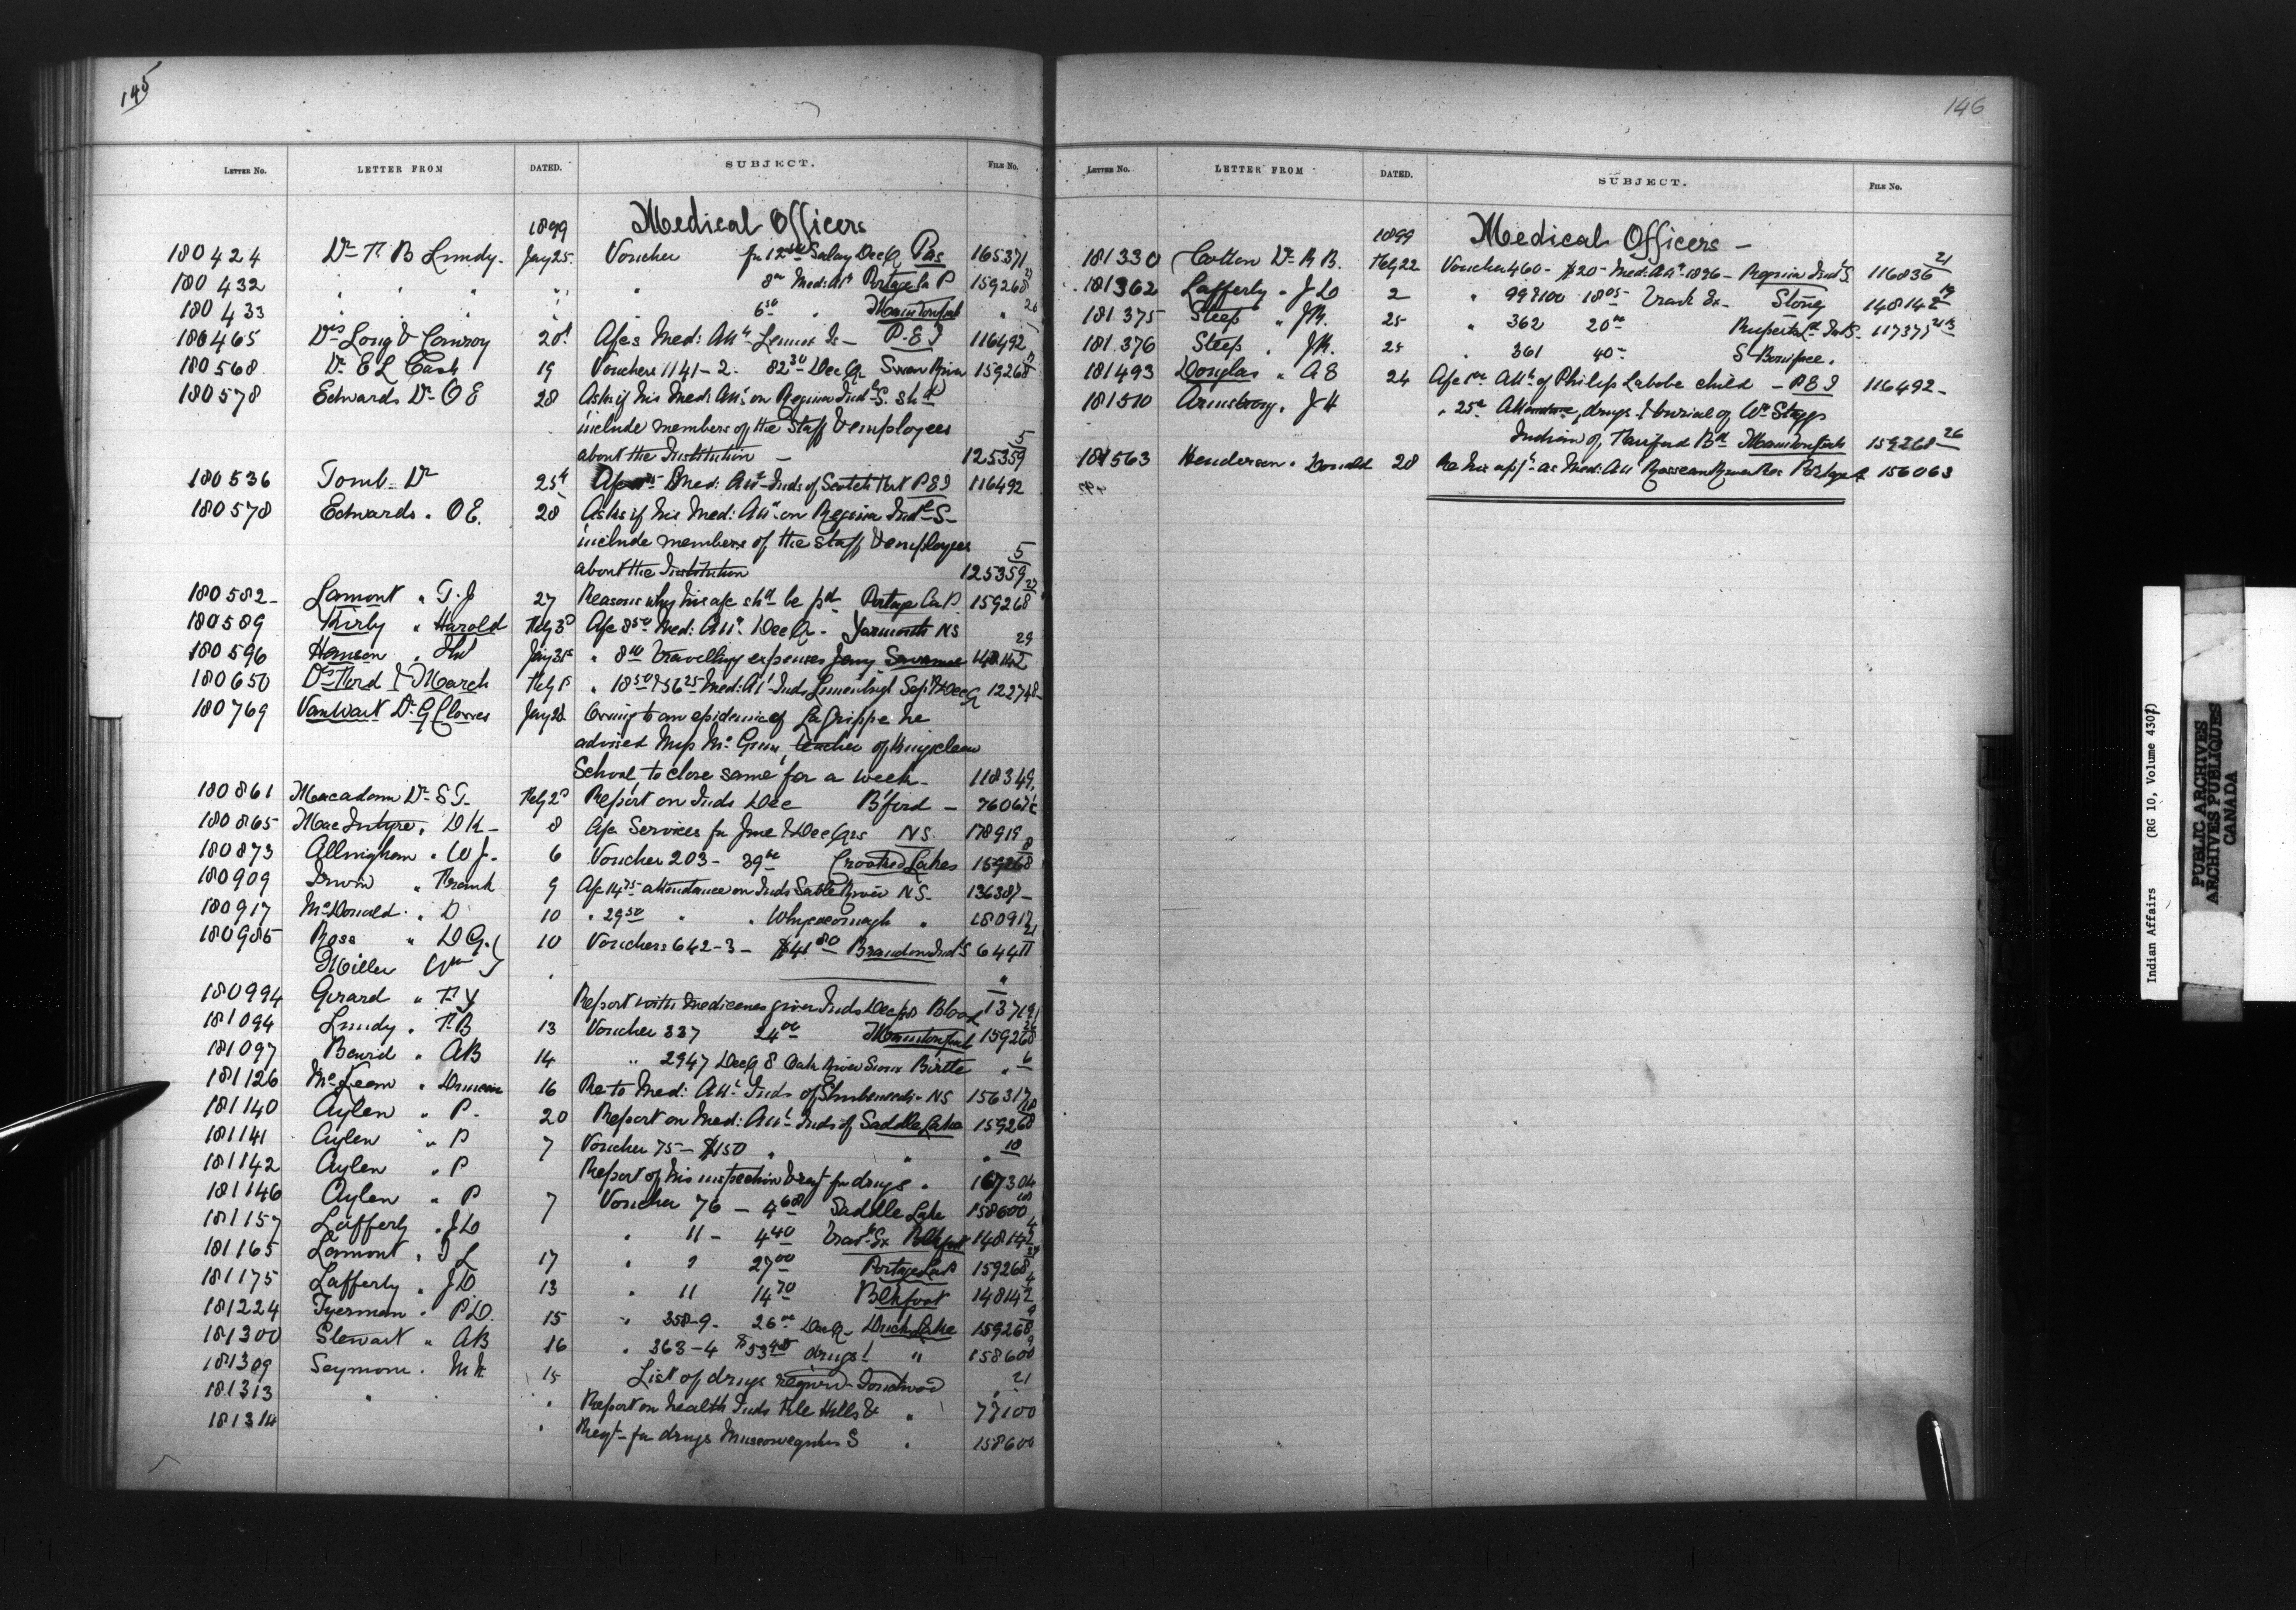 145
LETTER No. LETTER FROM DATED. SUBJECT. FILE No.
1899 Medical Officers
180424 Dr F. B Lundy. Jany 25. Voucher fr 12 Salary Dec Q Pas 165371
180432 " " " " " 8 00 Med: Att Portage la P 159268 27
180433 " " " " " 6 50 " Manitowpah " 26
180465 Drs Long & Conroy 20 A/cs Med: Att Lennox Is - P.E.I 116492
180568 Dr E L Cash 19 Vouchers 1141-2. 82 30 Dec Q. Swan River 159268
180578 Edwards Dr O E 28 Asks if his Med: Att on Regina Indl S. shd
include members of the Staff & employees
about the Institution - 125359 5
180536 Tomb. Dr 25 A/c Med: Att Inds of Scotch Fort P E I 116492
180578 Edwards. O E. 28 Asks if his Med: Att on Regina Indl S-
include members of the staff & employees
about the Institution 125359 5
180582- Lamont " T. J 27 Reasons why his a/c shd be pd Portage La P. 159268 27
180589 Kirby " Harold Feby 3 A/c 8 50 Med: Att. Dec Q. Yarmouth NS
180596 Jany 31 " 8 travelling expenses Jany 148142 29
180650 Drs & March Feby 1 " 18 50 & 56 25 Med: At Inds Lunenburg Sept & Dec Q 122748-
180769 VanWart Dr G Clowes Jany 28 Owing to an epidemic of La Grippe he
advised Miss Mc teacher of Kingsclear
School, to close same for a week - 118349
180861 Macadam Dr S T- Feby 2 Report on Inds Dec B'ford - 76067
180865 MacIntyre. D K- 8 A/c Services fr June & Dec Qrs NS. 178919
180873 Allingham. W J. 6 Voucher 203- 39 Crooked Lakes 159268 8
180909 Irwin " Frank 9 A/c 14 75 attendance on Inds Sable River NS. 136387-
180917 McDonald. " D 10 " 29 50 " " Whycocomagh " 180917
180985 Ross " D G. 10 Vouchers 642-3- $41 80 Brandon Indl S 64411 21
Miller Wm " "
180994 Girard " F. X Report with medicines given Inds Dec for Blood 13719
181094 Lundy. F. B 13 Voucher 337 24 00 Manitowpah 159268 26
181097 Baird " AB 14 " 2947 Dec Q 8 Oak River Sioux Birtle " 6
181126 McLean " Duncan 16 Re to Med: Att. Inds of Shubenacadie NS 156317
181140 Aylen " P. 20 Report on Med: Att. Inds of Saddle Lake 159268 18
181141 Aylen " P 7 Voucher 75- $150 " " " 18
181142 Aylen " P Report of his inspection & reqt for drugs " 167304
181146 Aylen " P 7 Voucher 76 - 4 68 Saddle Lake 158600
181157 Lafferty " JD " 11 - 4 40 Trav. Ex Blkfoot 148142 4
181165 Lamont " T L 17 " 2 27 00 Portage La P 159268 27
181175 Lafferty " JD 13 " 11 14 70 Blkfoot 148142 4
181224 Tyerman. P. D. 15 " 358-9- 26 Dec Q - Duck Lake 159268 9
181300 Stewart " AB 16 " 363-4 $53 drugs " 158600 9
181309 Seymour. M M. 15 List of drugs required - Touchwood " 21
181313 " " Report on health Inds File Hills & " 77100
181314 " Reqt for drugs Muscowequans S " 158600
146
LETTER No. LETTER FROM DATED. SUBJECT. FILE No.
1899 Medical Officers -
181330 Cotton Dr R B. Feby 22 Voucher 460- $20- Med: Att. 1896 - Regina Indl S. 116836 21
181362 Lafferty " J D 2 " 99 & 100 18 05 Trav Ex- Stoney 148142
181375 Steep " JR. 25 " 362 20 Ruperts Ld Ind S- 117375
181376 Steep " JR. 25 " 361 40 S Boniface.
181493 Douglas " A E 24 A/c Att of Philip Labobe child - P E I 116492-
181510 Armstrong. J H " 25 Attendance, drugs & burial of Wm
Indian of Bd Manitowpah 159268 26
181563 Henderson. Donald 28 Re his appt as Med: Att Rosseau River Res Portage 156063
Indian Affairs (RG 10, Volume 4307)
PUBLIC ARCHIVES
ARCHIVES PUBLIQUES
CANADA